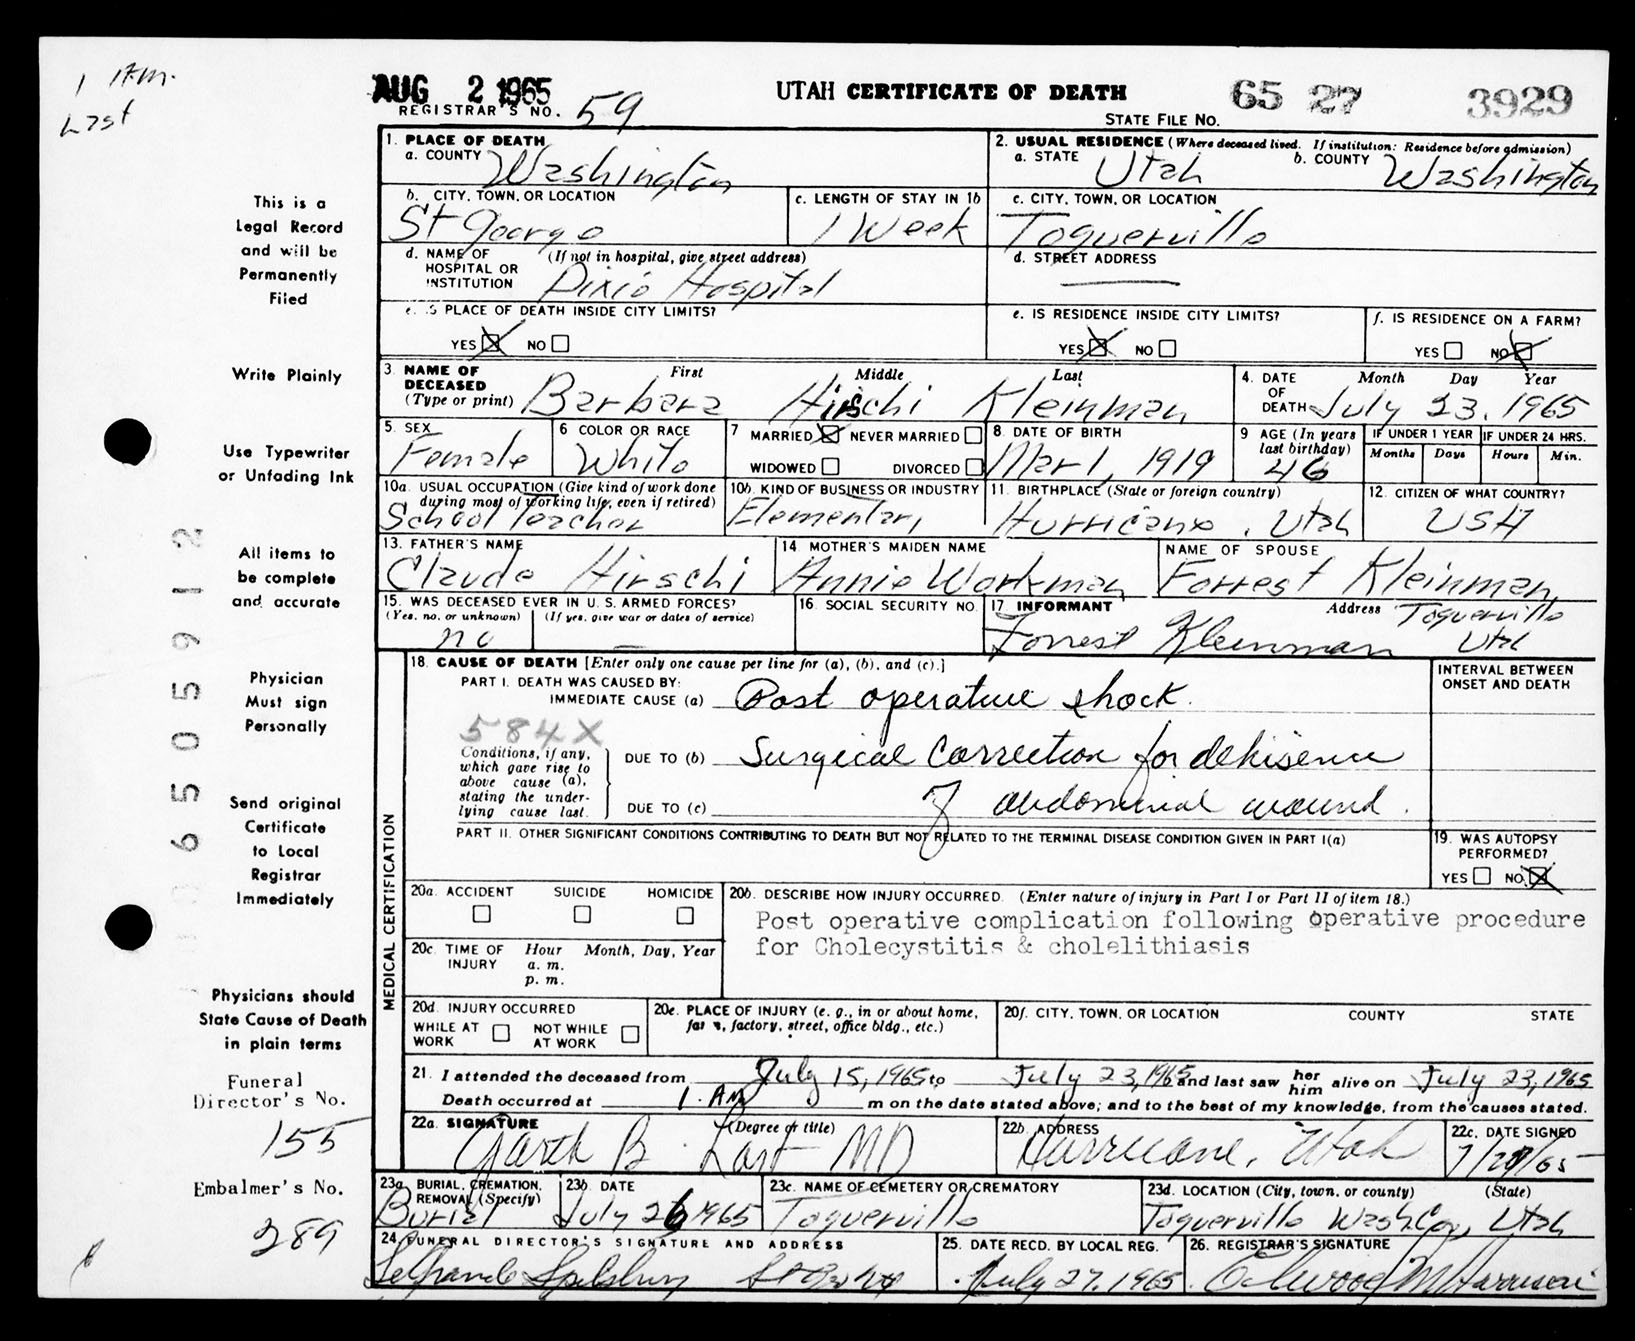 1 AM.
Last
AUG 2 1965
REGISTRAR'S NO. 59
UTAH CERTIFICATE OF DEATH
65 27 3929
STATE FILE NO.
This is a
Legal Record
and will be
Permanently
Filed
Write Plainly
Use Typewriter
or Unfading Ink
All items to
be complete
and accurate
Physician
Must sign
Personally
Send original
Certificate
to Local
Registrar
Immediately
Physicians should
State Cause of Death
in plain terms
Funeral
Director's No.
155
Embalmer's No.
289
1. PLACE OF DEATH
a. COUNTY Washington
2. USUAL RESIDENCE (Where deceased lived. If institution: Residence before admission)
a. STATE Utah b. COUNTY Washington
b. CITY, TOWN, OR LOCATION
St George
c. LENGTH OF STAY IN 1b
1 Week
c. CITY, TOWN, OR LOCATION
Toquerville
d. NAME OF HOSPITAL OR INSTITUTION (If not in hospital, give street address)
Dixie Hospital
d. STREET ADDRESS
e. IS PLACE OF DEATH INSIDE CITY LIMITS?
YES NO
e. IS RESIDENCE INSIDE CITY LIMITS?
YES NO
f. IS RESIDENCE ON A FARM?
YES NO
3. NAME OF DECEASED (Type or print) First Middle Last
Barbara Hirschi Kleinman
4. DATE OF DEATH Month Day Year
July 23, 1965
5. SEX
Female
6 COLOR OR RACE
White
7 MARRIED NEVER MARRIED
WIDOWED DIVORCED
8. DATE OF BIRTH
Mar 1, 1919
9 AGE (In years last birthday)
46
IF UNDER 1 YEAR
Months Days
IF UNDER 24 HRS.
Hours Min.
10a. USUAL OCCUPATION (Give kind of work done during most of working life, even if retired)
School Teacher
10b. KIND OF BUSINESS OR INDUSTRY
Elementary
11. BIRTHPLACE (State or foreign country)
Hurricane, Utah
12. CITIZEN OF WHAT COUNTRY?
USA
13. FATHER'S NAME
Claude Hirschi
14. MOTHER'S MAIDEN NAME
Annie Workman
NAME OF SPOUSE
Forrest Kleinman
15. WAS DECEASED EVER IN U. S. ARMED FORCES?
(Yes, no, or unknown) (If yes, give war or dates of service)
no
16. SOCIAL SECURITY NO.
17. INFORMANT Address
Forrest Kleinman Toquerville Utah
MEDICAL CERTIFICATION
18. CAUSE OF DEATH [Enter only one cause per line for (a), (b), and (c).]
INTERVAL BETWEEN ONSET AND DEATH
PART I. DEATH WAS CAUSED BY:
IMMEDIATE CAUSE (a) Post operative shock.
584X
Conditions, if any, which gave rise to above cause (a), stating the underlying cause last.
DUE TO (b) Surgical Correction for dehisence
DUE TO (c) of abdominal wound.
PART II. OTHER SIGNIFICANT CONDITIONS CONTRIBUTING TO DEATH BUT NOT RELATED TO THE TERMINAL DISEASE CONDITION GIVEN IN PART I(a)
19. WAS AUTOPSY PERFORMED?
YES NO
20a. ACCIDENT SUICIDE HOMICIDE
20b. DESCRIBE HOW INJURY OCCURRED. (Enter nature of injury in Part I or Part II of item 18.)
Post operative complication following operative procedure
for Cholecystitis & cholelithiasis
20c. TIME OF INJURY Hour Month, Day, Year
a. m.
p. m.
20d. INJURY OCCURRED
WHILE AT WORK NOT WHILE AT WORK
20e. PLACE OF INJURY (e. g., in or about home, farm, factory, street, office bldg., etc.)
20f. CITY, TOWN, OR LOCATION COUNTY STATE
21. I attended the deceased from July 15, 1965 to July 23, 1965 and last saw her him alive on July 23, 1965
Death occurred at 1. AM m on the date stated above; and to the best of my knowledge, from the causes stated.
22a. SIGNATURE (Degree or title)
Garth B Last MD
22b. ADDRESS
Hurricane, Utah
22c. DATE SIGNED
23a. BURIAL, CREMATION, REMOVAL (Specify)
Burial
23b. DATE
July 26 1965
23c. NAME OF CEMETERY OR CREMATORY
Toquerville
23d. LOCATION (City, town, or county) (State)
Toquerville Wash. Co, Utah
24. FUNERAL DIRECTOR'S SIGNATURE AND ADDRESS
Spilsbury
25. DATE RECD. BY LOCAL REG.
July 27, 1965
26. REGISTRAR'S SIGNATURE